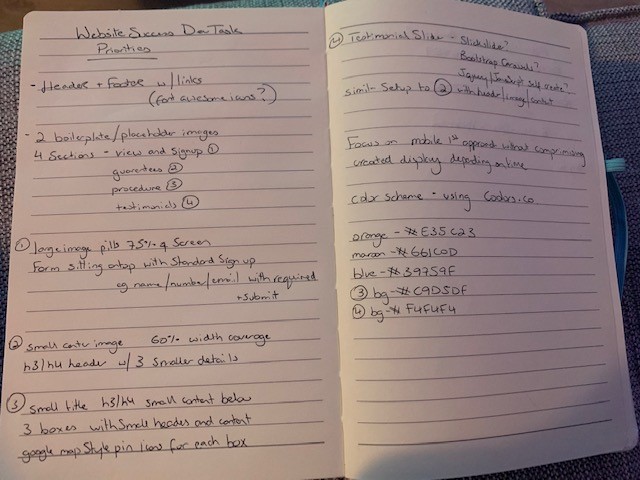 Website Success Dev Task
Priorities
- Header + Footer w/ links
(font awesome icons?)
- 2 boilerplate/placeholder images
4 Sections - view and signup ①
guarantees ②
procedure ③
testimonials ④
① large image fills 75% of Screen
Form sitting ontop with Standard Sign up
eg name/number/email with required
+ submit
② small center image 60% width coverage
h3/h4 header w/ 3 smaller details
③ small title h3/h4 small content below
3 boxes with small header and content
google map style pin icons for each box
④ Testimonial Slider - Slickslider?
Bootstrap Carousels?
Jquery/JavaScript self create?
similar Setup to ② with header/image/content
Focus on mobile 1st approach without comprimising
created display depending on time
color scheme - using Coolors.co
orange - # E35C23
maroon - # 661C0D
blue - # 39759F
③ bg - # C9D5DF
④ bg - # F4F4F4